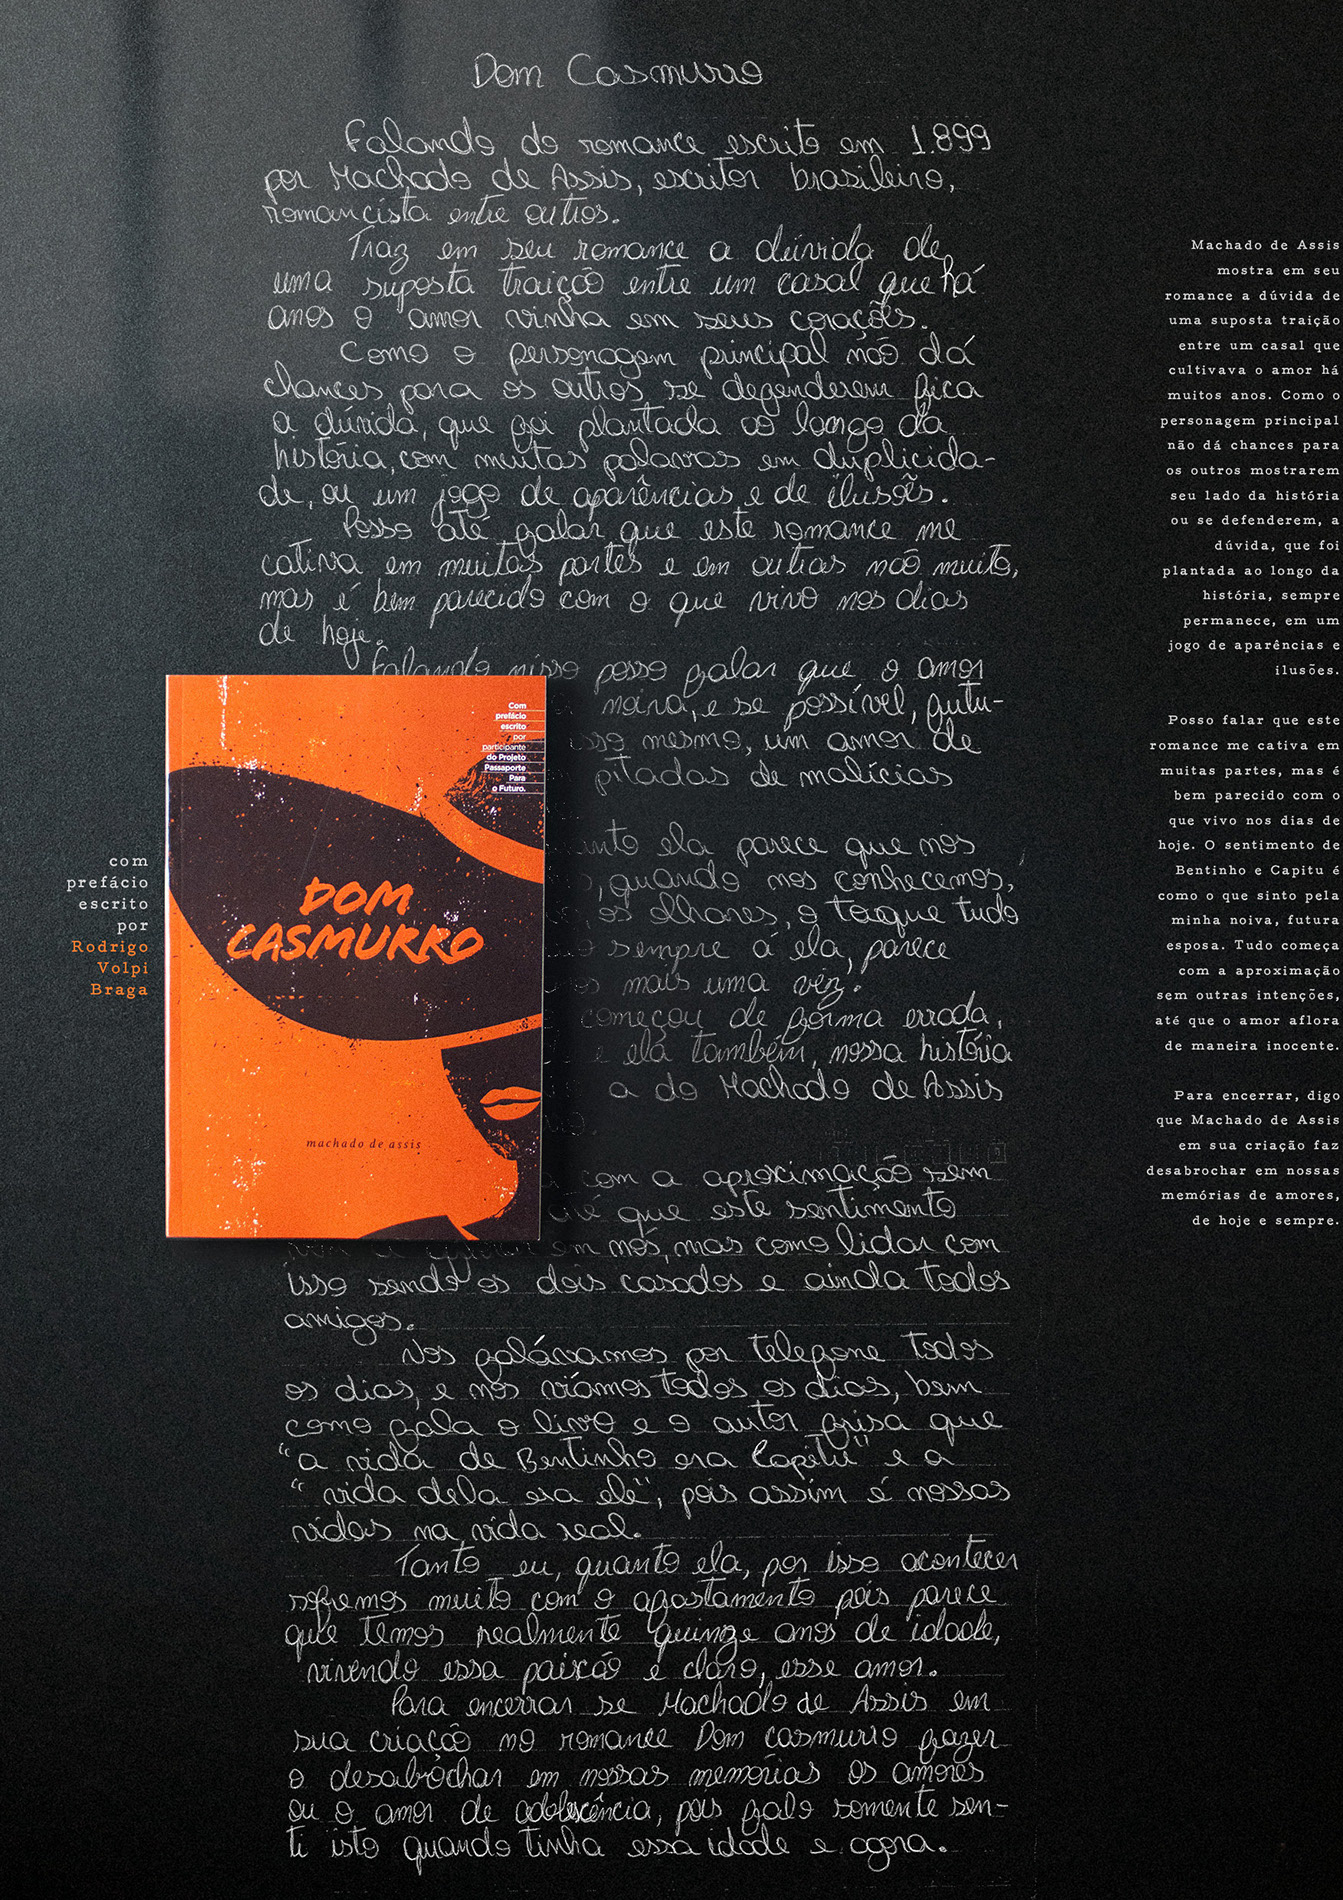 Dom Casmurro
Falando do romance escrito em 1.899
por Machado de Assis, escritor brasileiro,
romancista entre outros.
Traz em seu romance a dúvida de
uma suposta traição entre um casal que há
anos o amor vinha em seus corações.
Como o personagem principal não dá
chances para os outros se defenderem fica
a dúvida, que foi plantada ao longo da
história, com muitas palavras em duplicida-
de, ou um jogo de aparências e de ilusões.
Posso até falar que este romance me
cativa em muitas partes e em outras não muito,
mas é bem parecido com o que vivo nos dias
de hoje.
Falando nisso posso falar que o amor
noiva, e se possível, futu-
isso mesmo, um amor de
pitadas de malícias
ela parece que nos
, quando nos conhecemos,
os olhares, o toque tudo
sempre á ela, parece
mais uma vez.
começou de forma errada,
e ela também, nossa história
a do Machado de Assis
com a aproximação sem
até que este sentimento
em nós, mas como lidar com
isso sendo os dois casados e ainda todos
amigos.
Nos falávamos por telefone todos
os dias, e nos víamos todos os dias, bem
como fala o livro e o autor frisa que
"a vida de Bentinho era Capitu" e a
"vida dela era ele", pois assim é nossas
vidas na vida real.
Tanto eu, quanto ela, por isso acontecer
sofremos muito com o afastamento pois parece
que temos realmente quinze anos de idade,
vivendo essa paixão é claro, esse amor.
Para encerrar se Machado de Assis em
sua criação no romance Dom casmurro fazer
o desabrochar em nossas memórias os amores
ou o amor de adolescência, pois falo somente sen-
ti isto quando tinha essa idade e agora.
com
prefácio
escrito
por
Rodrigo
Volpi
Braga
Com
prefácio
escrito
por
participante
do Projeto
Passaporte
Para
o Futuro.
DOM
CASMURRO
machado de assis
Machado de Assis
mostra em seu
romance a dúvida de
uma suposta traição
entre um casal que
cultivava o amor há
muitos anos. Como o
personagem principal
não dá chances para
os outros mostrarem
seu lado da história
ou se defenderem, a
dúvida, que foi
plantada ao longo da
história, sempre
permanece, em um
jogo de aparências e
ilusões.
Posso falar que este
romance me cativa em
muitas partes, mas é
bem parecido com o
que vivo nos dias de
hoje. O sentimento de
Bentinho e Capitu é
como o que sinto pela
minha noiva, futura
esposa. Tudo começa
com a aproximação
sem outras intenções,
até que o amor aflora
de maneira inocente.
Para encerrar, digo
que Machado de Assis
em sua criação faz
desabrochar em nossas
memórias de amores,
de hoje e sempre.